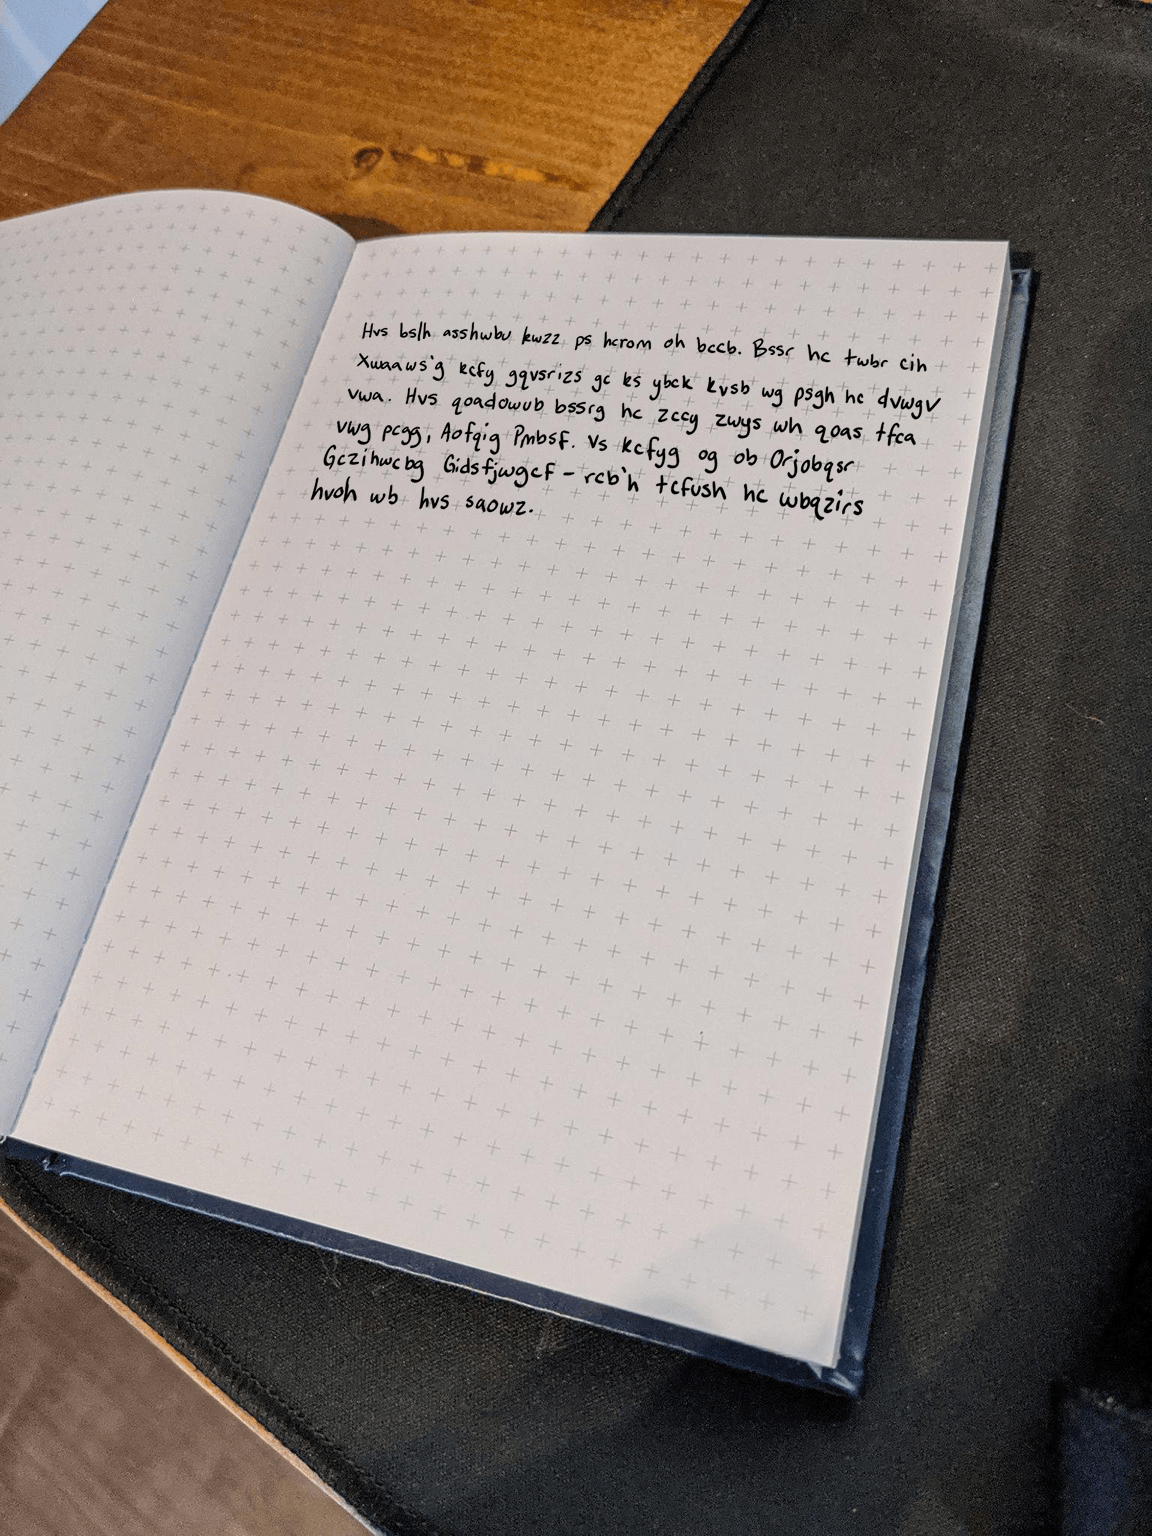 Hvs bslh asshwbu kwzz ps hcrom oh bccb. Bssr hc twbr cih
Xwaaws'g kcfy gqvsrizs gc ks ybck kvsb wg psgh hc dvwgv
vwa. Hvs qoadowub bssrg hc zccy zwys wh qoas tfca
vwg pcgg, Aofqig Pmbsf. Vs kcfyg og ob Orjobqsr
Gczihwcbg Gidsfjwgcf - rcb'h tcfush hc wbqzirs
hvoh wb hvs saowz.